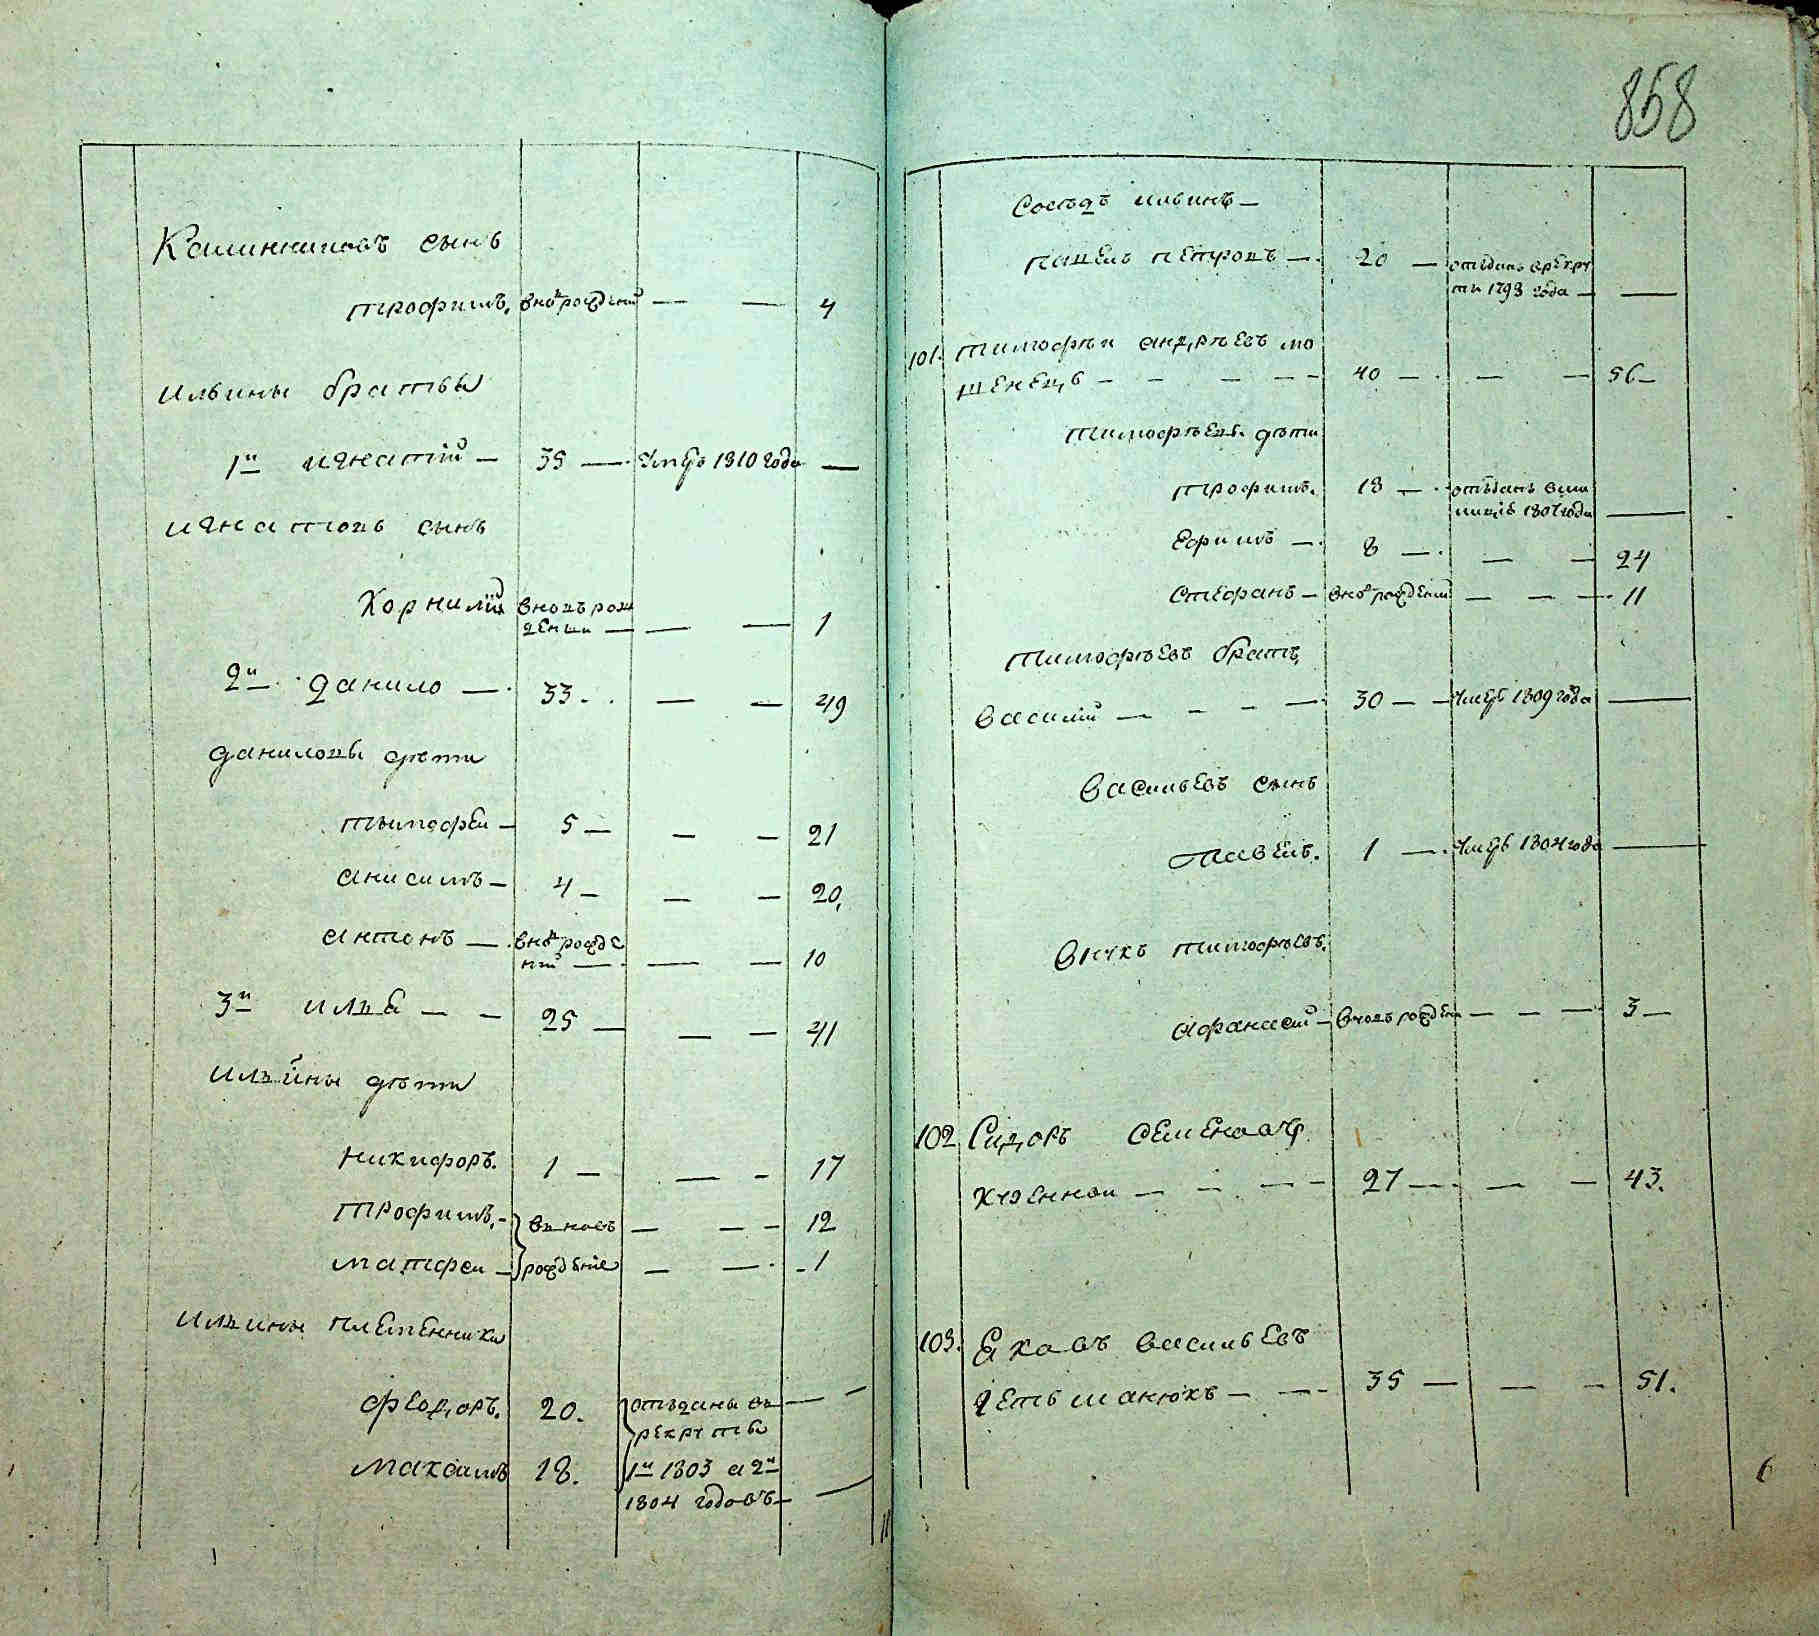 858
Калинниковъ сынъ
трофимъ. вновь рожденый — — 4
Ильины братья
1й игнатий — 35 — умеръ 1810 года —
игнатовъ сынъ
Корнилий вновь рож
денны — — — 1
2й данило — 33 — — 49
даниловы дети
тимофеи — 5 — — — 21
анисимъ — 4 — — — 20
антонъ — вновь рожде
ный — — — 10
3й илья — — 25 — — — 41
ильины дети
никифоръ. 1 — — — 17
трофимъ. — вьновь — — — 12
матфеи — рожденые — — 1
ильины племенники
феодоръ. 20. отъданы въ —
рекруты
максимъ 18. 1й 1803 а 2й
1804 годовъ —
Соседъ ильинъ —
павелъ петровъ — 20 — отъданъ врекру
ты 1793 года — —
101. тимофеи андреевъ мо
шенецъ — — — — 40 — — — 56 —
тимофеевы дѣти
трофимъ. 18 — отъданъ вми
лицию 1807 года —
Ефимъ — 8 — — — 24
стефанъ — вновь рожденый — — — 11
тимофеевъ братъ
василий — — — — 30 — — умеръ 1809 года —
васильевъ сынъ
павелъ. 1 — умеръ 1804 года —
внукъ тимофеевъ.
афанасий — вновь рожден — — — 3 —
102 Сидоръ семеновъ
— — — — 27 — — — 43.
103. Яковъ васильевъ
гетьманюкъ — — — 35 — — — 51.